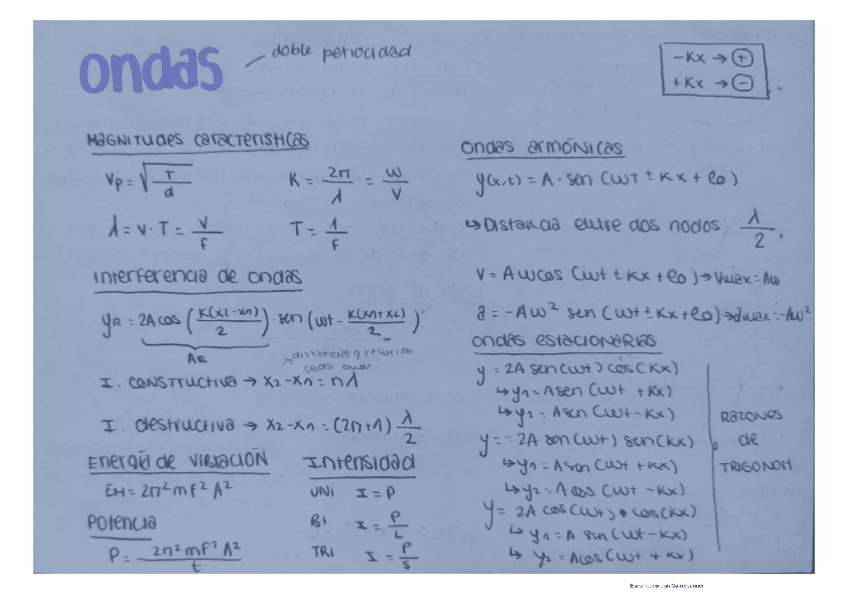 ondas
doble periocidad
-Kx → ⊕
+Kx → ⊖
MAGNITUDES CARACTERISTICAS
Vp = √(T/d)
K = 2π/λ = W/V
λ = v · T = V/F
T = 1/F
Interferencia de ondas
yR = 2A cos (K(x2-x1)/2) · sen (wt - K(x1+x2)/2)
AR
distancias q recorren
cada onda
I. CONSTRUCTIVA → x2-x1 = nλ
I. destructiva → x2-x1 = (2n+1) λ/2
ENERGÍA DE VIBRACIÓN
EM = 2π² m F² A²
POTENCIA
P = 2π² m F² A² / t
Intensidad
UNI I = P
BI I = P/L
TRI I = P/S
ondas armónicas
y(x,t) = A · sen (WT ± Kx + φ0)
↳ Distancia entre dos nodos: λ/2.
V = Aw cos (wt ± Kx + φ0) → Vmax = Aw
a = -Aw² sen (wt ± Kx + φ0) → amax = -Aw²
ondas ESTACIONARIAS
y = 2A sen(wt) cos(Kx)
↳ y1 = A sen (wt + Kx)
↳ y2 = A sen (wt - Kx)
y = -2A sen (wt) sen(Kx)
↳ y1 = A sen (wt + Kx)
↳ y2 = A cos (wt - Kx)
y = 2A cos (wt) • cos(Kx)
↳ y1 = A sin (wt - Kx)
↳ y2 = A cos (wt + Kx)
RAZONES
de
TRIGONOM